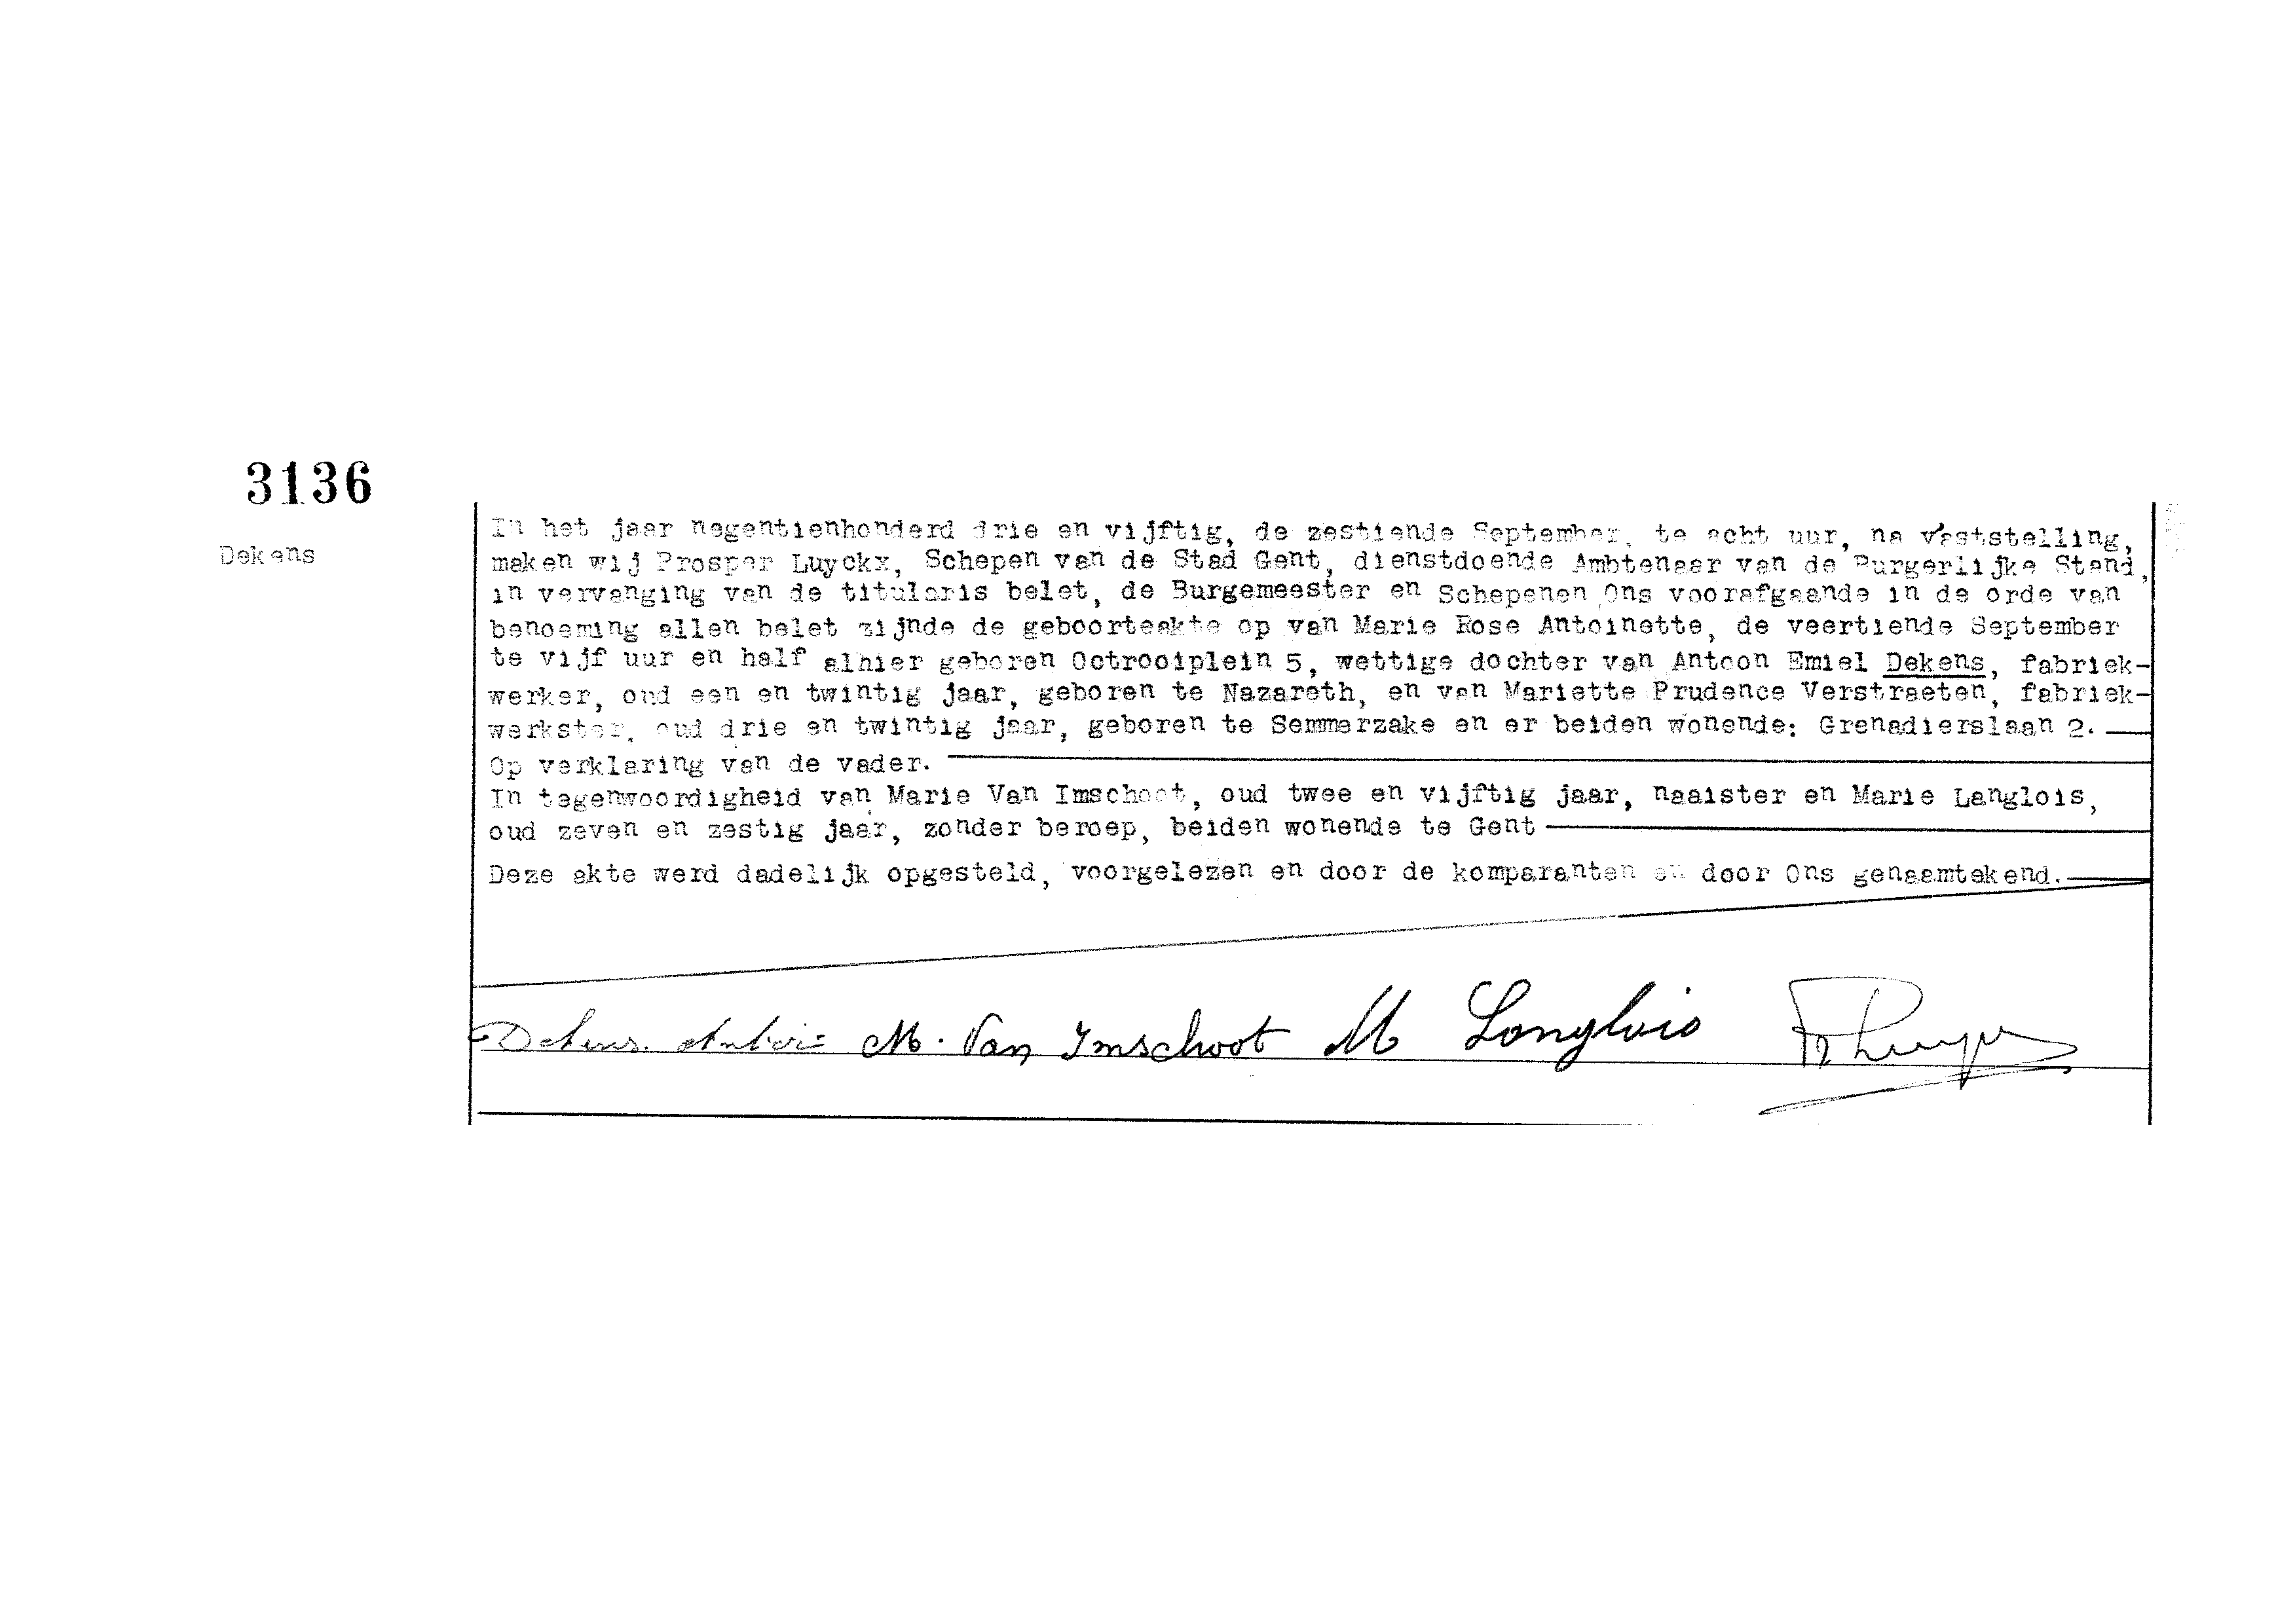 3136
Dekens
In het jaar negentienhonderd drie en vijftig, de zestiende September, te acht uur, na vaststelling,
maken wij Prosper Luyckx, Schepen van de Stad Gent, dienstdoende Ambtenaar van de Burgerlijke Stand,
in vervanging van de titularis belet, de Burgemeester en Schepenen Ons voorafgaande in de orde van
benoeming allen belet zijnde de geboorteakte op van Marie Rose Antoinette, de veertiende September
te vijf uur en half alhier geboren Octrooiplein 5, wettige dochter van Antoon Emiel Dekens, fabriek-
werker, oud een en twintig jaar, geboren te Nazareth, en van Mariette Prudence Verstraeten, fabriek-
werkster, oud drie en twintig jaar, geboren te Semmerzake en er beiden wonende: Grenadierslaan 2.
Op verklaring van de vader.
In tegenwoordigheid van Marie Van Imschoot, oud twee en vijftig jaar, naaister en Marie Langlois,
oud zeven en zestig jaar, zonder beroep, beiden wonende te Gent
Deze akte werd dadelijk opgesteld, voorgelezen en door de komparanten en door Ons genaamtekend.
Dekens M. Van Imschoot M Langlois